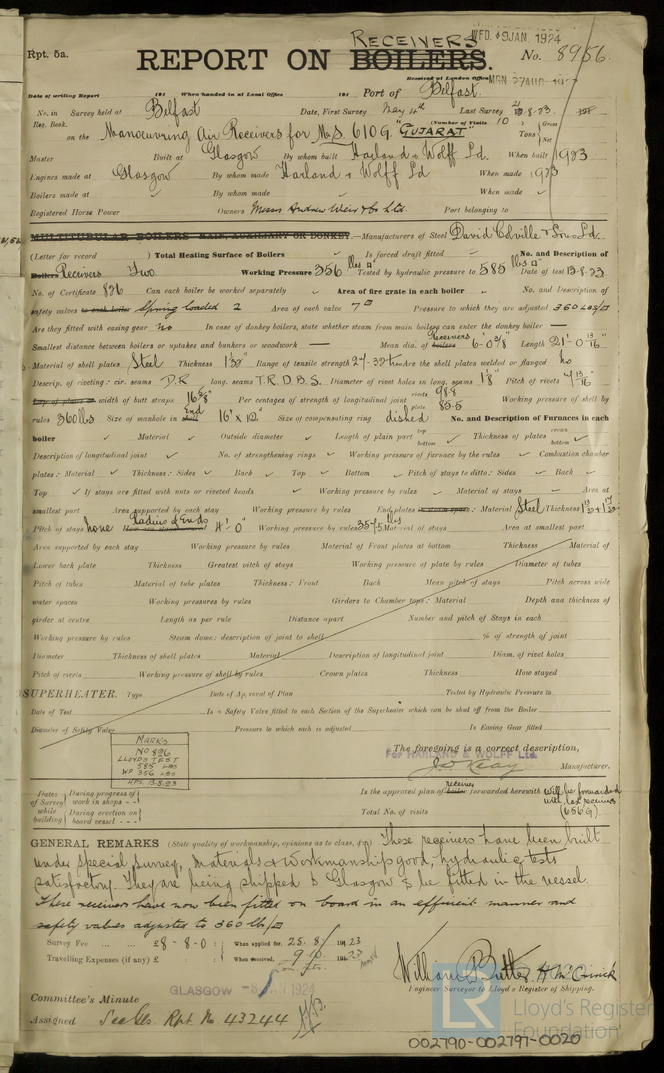 RECEIVERS
WED. 9 JAN. 1924
Rpt. 5a.
REPORT ON BOILERS.
No. 8956.
Received at London Office
MON. 27 AUG. 192
Date of writing Report 191 When handed in at Local Office 191 Port of Belfast.
No. in Survey held at Belfast Date, First Survey May 4th Last Survey 21.8.23 191
Reg. Book. (Number of Visits 10)
on the Manoeuvring Air Receivers for M.S. 610G. "GUJARAT" Tons Gross Net
Master Built at Glasgow By whom built Harland & Wolff Ld. When built 1923
Engines made at Glasgow By whom made Harland & Wolff Ld When made 1923
Boilers made at ✓ By whom made ✓ When made ✓
Registered Horse Power Owners Messrs Andrew Weir & Co Ltd. Port belonging to
MULTITUBULAR BOILERS MAIN, AUXILIARY OR DONKEY.—Manufacturers of Steel David Colville & Sons Ld.
(Letter for record ) Total Heating Surface of Boilers ✓ Is forced draft fitted ✓ No. and Description of
Boilers Receivers Two Working Pressure 356 lbs □" Tested by hydraulic pressure to 585 lbs □" Date of test 13.8.23
No. of Certificate 826 Can each boiler be worked separately ✓ Area of fire grate in each boiler ✓ No. and Description of
safety valves to each boiler Spring loaded 2 Area of each valve 7 □" Pressure to which they are adjusted 360 Lbs/□"
Are they fitted with easing gear No In case of donkey boilers, state whether steam from main boilers can enter the donkey boiler —
Smallest distance between boilers or uptakes and bunkers or woodwork — Mean dia. of boilers Receivers 6'-0 3/8" Length 21'-0 13/16"
Material of shell plates Steel Thickness 1 5/32" Range of tensile strength 27-32 tons Are the shell plates welded or flanged no
Descrip. of riveting: cir. seams D.R. long. seams T.R.D.B.S. Diameter of rivet holes in long. seams 1 1/8" Pitch of rivets 7 13/16"
Lap of plates or width of butt straps 16 5/8" Per centages of strength of longitudinal joint rivets 98.8 plate 85.5 Working pressure of shell by
rules 360 lbs Size of manhole in shell End 16" x 12" Size of compensating ring dished No. and Description of Furnaces in each
boiler ✓ Material ✓ Outside diameter ✓ Length of plain part top bottom ✓ Thickness of plates crown bottom ✓
Description of longitudinal joint ✓ No. of strengthening rings ✓ Working pressure of furnace by the rules ✓ Combustion chamber
plates: Material ✓ Thickness: Sides ✓ Back ✓ Top ✓ Bottom ✓ Pitch of stays to ditto: Sides ✓ Back ✓
Top ✓ If stays are fitted with nuts or riveted heads ✓ Working pressure by rules ✓ Material of stays ✓ Area at
smallest part Area supported by each stay Working pressure by rules End plates in steam space: Material Steel Thickness
Pitch of stays none Radius of Ends 4'-0" Working pressure by rules 357.5 lbs Material of stays Area at smallest part
Area supported by each stay Working pressure by rules Material of Front plates at bottom Thickness Material of
Lower back plate Thickness Greatest pitch of stays Working pressure of plate by rules Diameter of tubes
Pitch of tubes Material of tube plates Thickness: Front Back Mean pitch of stays Pitch across wide
water spaces Working pressures by rules Girders to Chamber tops: Material Depth and thickness of
girder at centre Length as per rule Distance apart Number and pitch of Stays in each
Working pressure by rules Steam dome: description of joint to shell % of strength of joint
Diameter Thickness of shell plates Material Description of longitudinal joint Diam. of rivet holes
Pitch of rivets Working pressure of shell by rules Crown plates Thickness How stayed
SUPERHEATER. Type Date of Approval of Plan Tested by Hydraulic Pressure to
Date of Test Is a Safety Valve fitted to each Section of the Superheater which can be shut off from the Boiler
Diameter of Safety Valve Pressure to which each is adjusted Is Easing Gear fitted
MARKS
No 826
LLOYDS TEST
585 LBS
WP 356 LBS
13.8.23
The foregoing is a correct description,
For HARLAND & WOLFF Ltd.
Manufacturer.
Dates of Survey while building During progress of work in shops - - During erection on board vessel - - -
Is the approved plan of boiler receiver forwarded herewith will be forwarded with last receiver (656G).
Total No. of visits
GENERAL REMARKS (State quality of workmanship, opinions as to class, &c.) These receivers have been built
under special survey, Materials & Workmanship good, hydraulic tests
satisfactory. They are being shipped to Glasgow to be fitted in the vessel.
These receivers have now been fitted on board in an efficient manner and
safety valves adjusted to 360 lb/□"
Survey Fee ... ... £8-8-0 : When applied for, 25.8.1923
Travelling Expenses (if any) £ : When received, 9.10.1923
William Butler
Engineer Surveyor to Lloyd's Register of Shipping.
GLASGOW -8 JAN 1924
Committee's Minute
Assigned See Gls. Rpt. No 43244
Lloyd's Register
Foundation
LR
002790-002797-0020